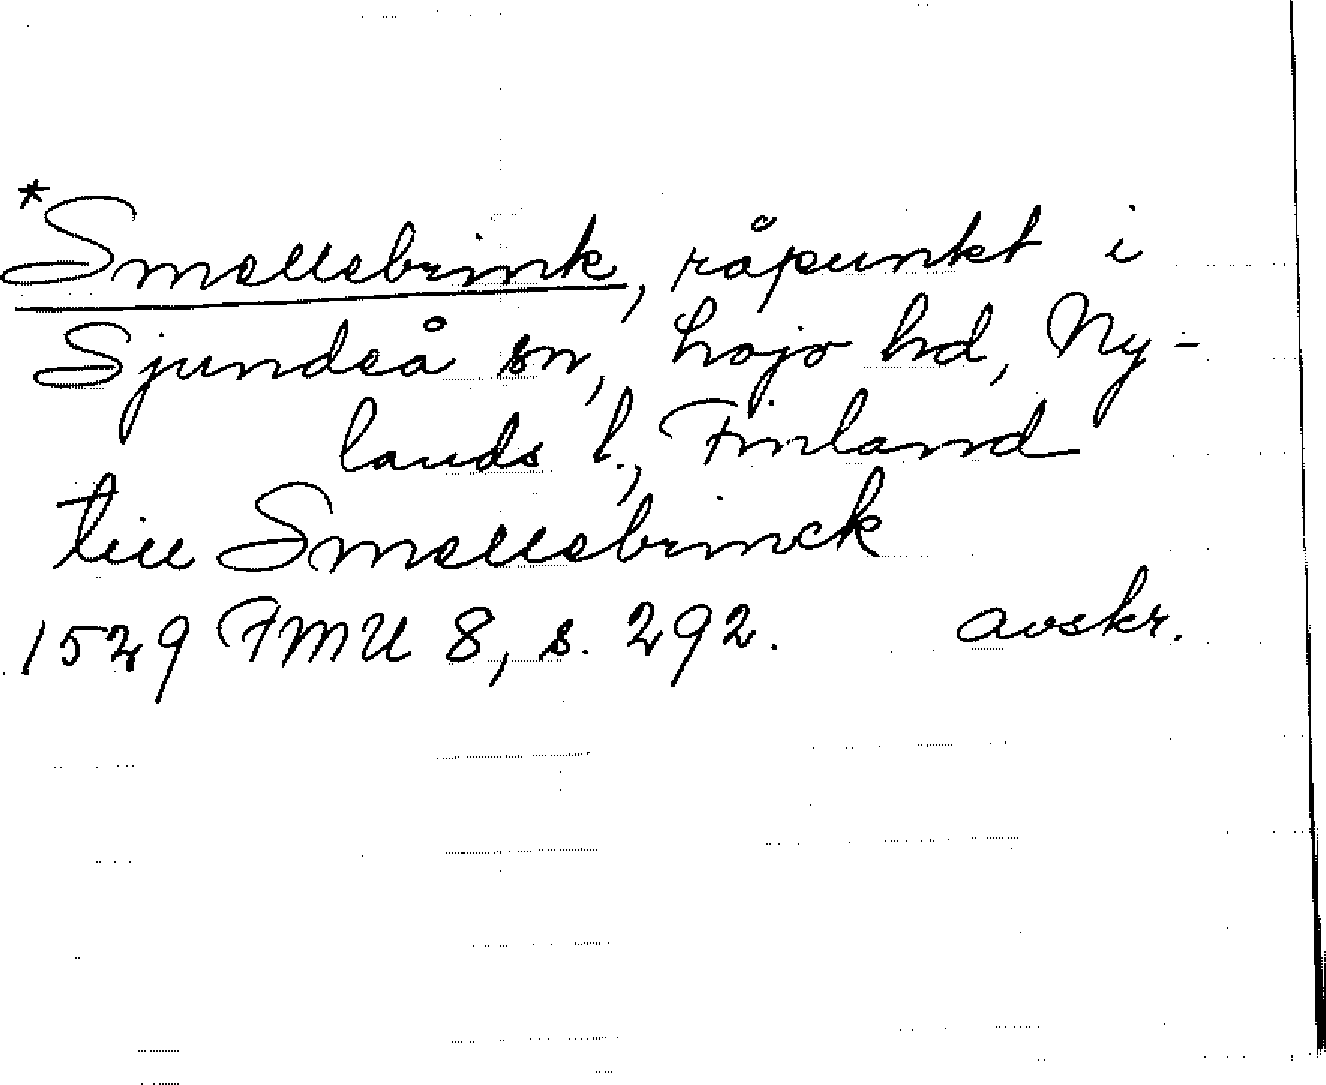 *Smellebrink, råpunkt i
Sjundeå sn, Lojo hd, Ny-
lands l., Finland
till Smellebrinck
1529 FMU 8, s. 292. avskr.